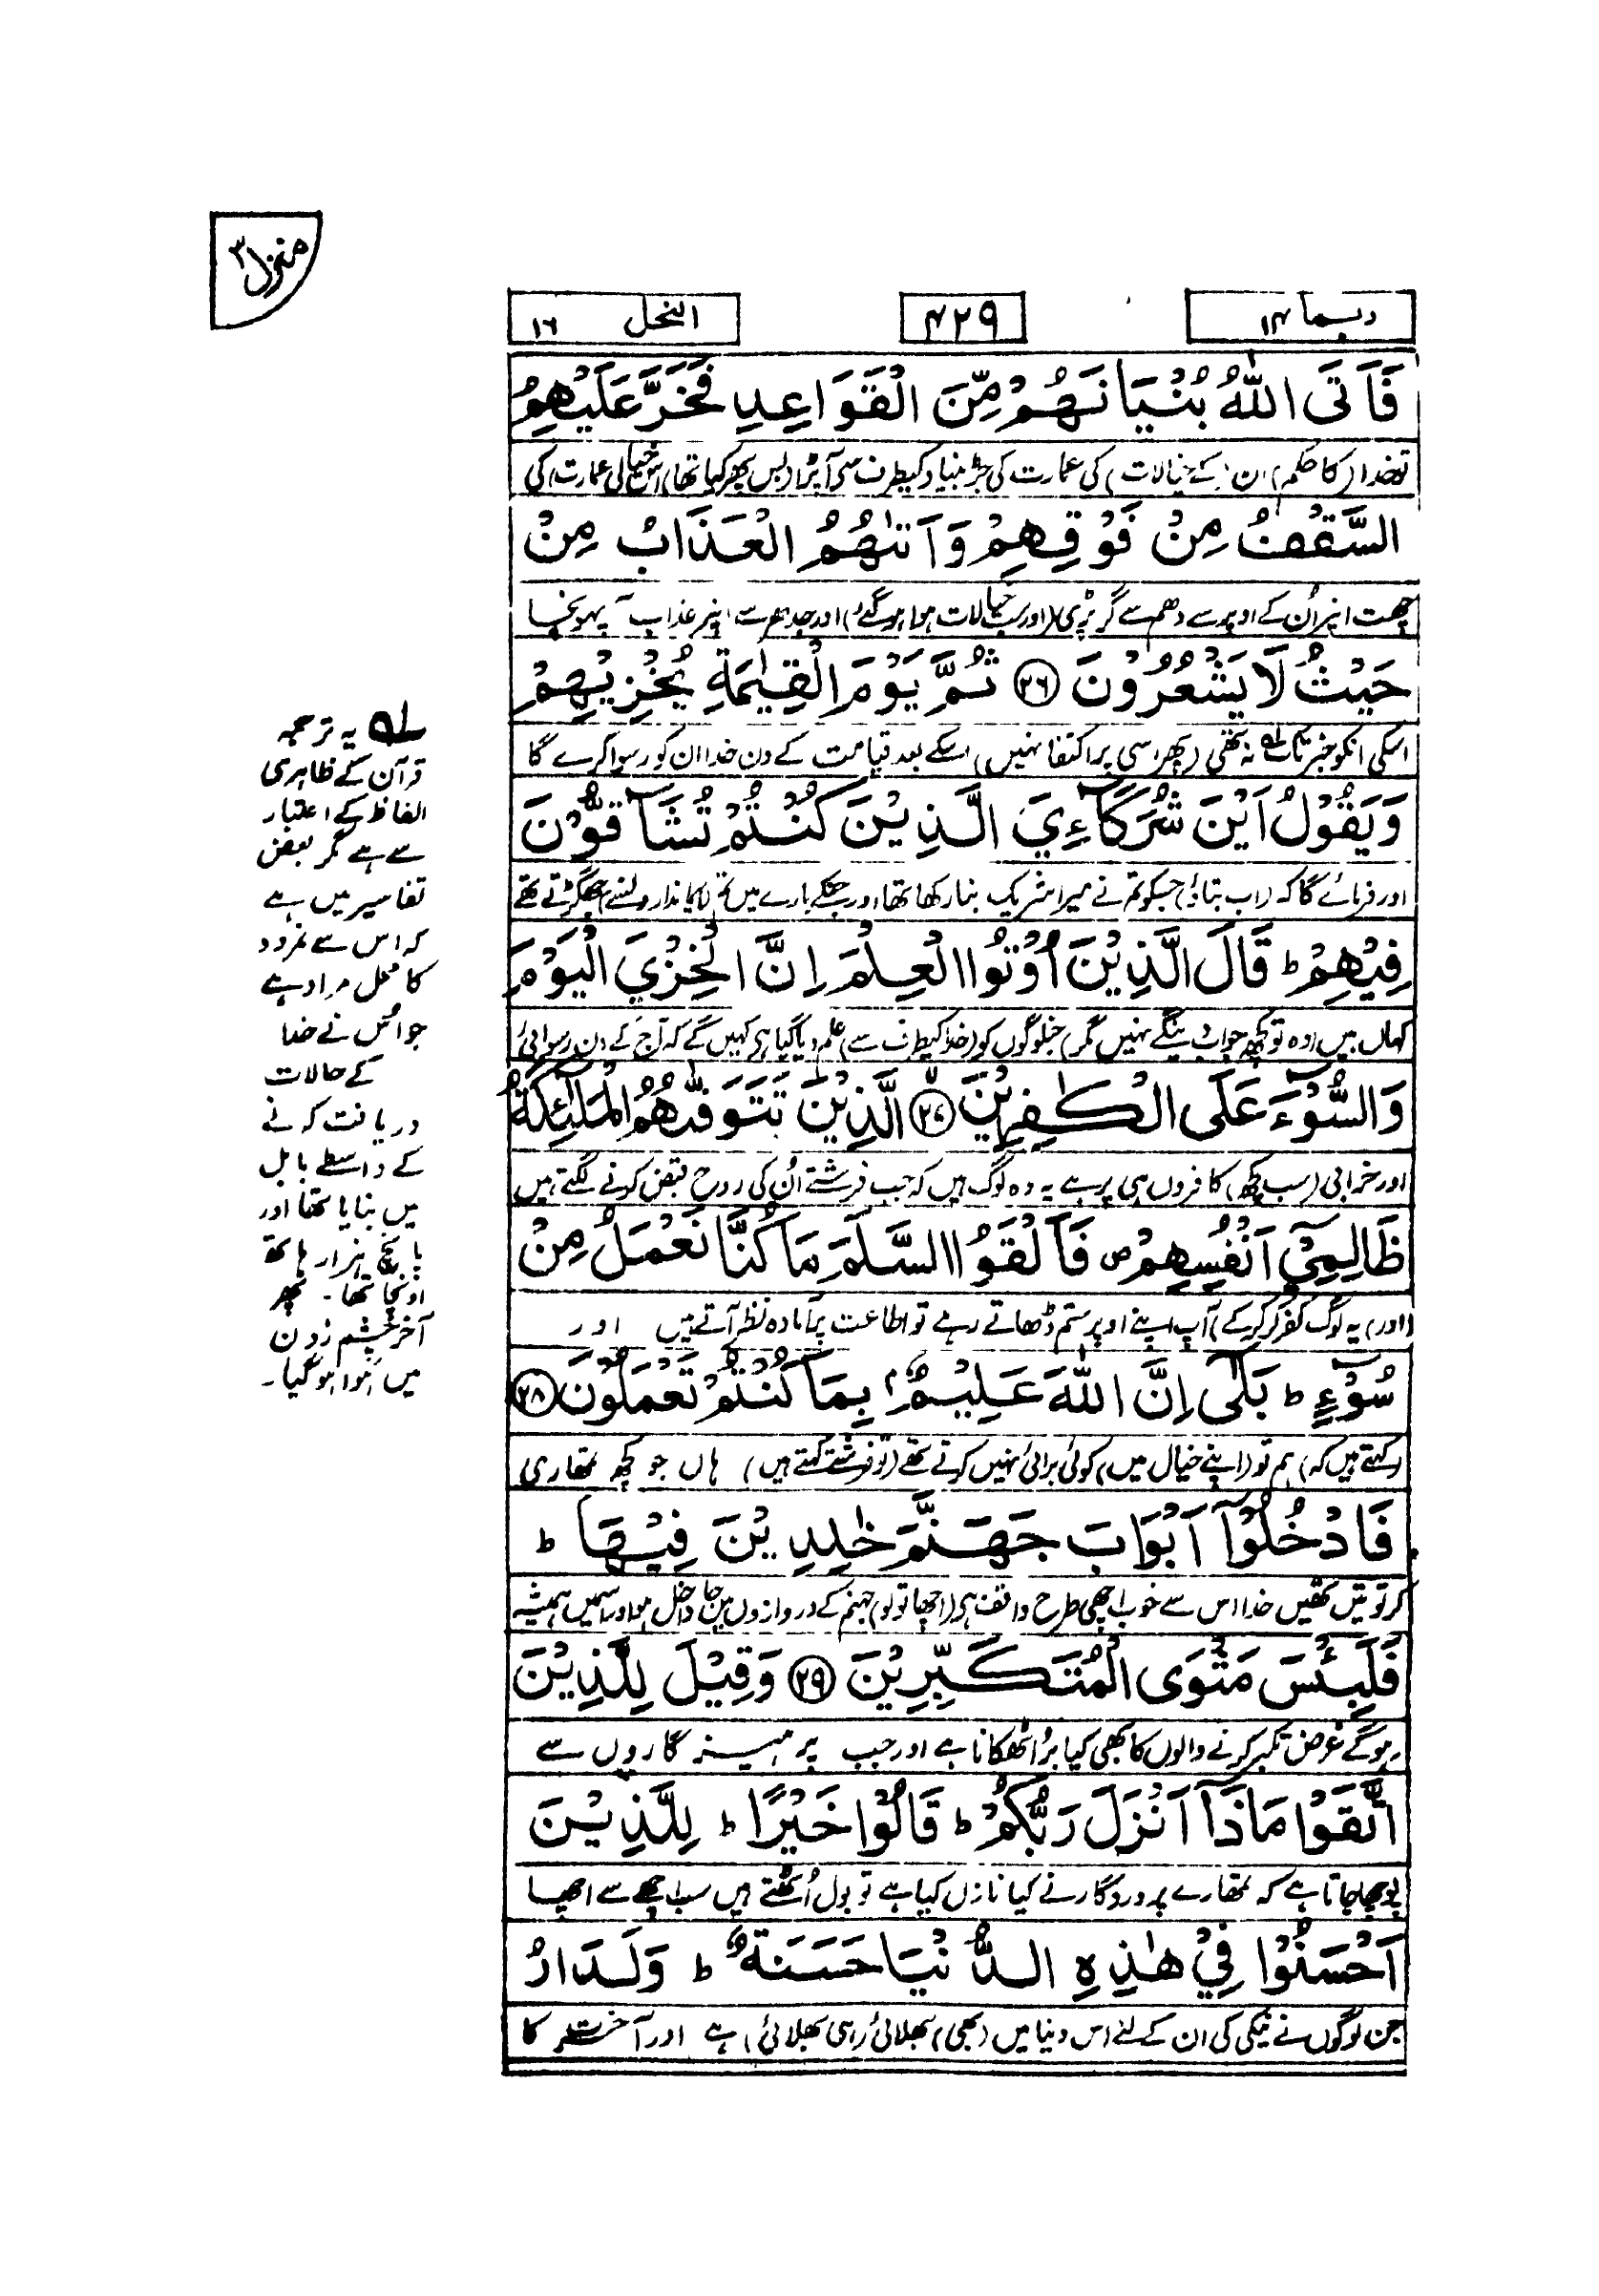 منزل ۳
ربما ۱۴
۴۲۹
النحل ۱۶
فَاَتَى اللّٰهُ بُنْيَانَهُمْ مِّنَ الْقَوَاعِدِ فَخَرَّ عَلَيْهِمُ
تو خدا (کا حکم) ان (کے خیالات) کی عمارت کی جڑ بنیاد کیطرف سے آپڑا (بس پھر کیا تھا) اس خیالی عمارت کی
السَّقْفُ مِنْ فَوْقِهِمْ وَاَتٰىهُمُ الْعَذَابُ مِنْ
چھت انپر اُن کے اوپر سے دھم سے گر پڑی (اور سب خیالات ہوا ہو گئے) اور جدھر سے انپر عذاب آپہونچا
حَيْثُ لَا يَشْعُرُوْنَ ۲۶ ثُمَّ يَوْمَ الْقِيٰمَةِ يُخْزِيْهِمْ
اسکی انکو خبر تک نہ تھی (پھر اسی پر اکتفا نہیں) اسکے بعد قیامت کے دن خدا ان کو رسوا کرے گا
وَيَقُوْلُ اَيْنَ شُرَكَآءِيَ الَّذِيْنَ كُنْتُمْ تُشَآقُّوْنَ
اور فرمائے گا کہ (اب بتاؤ) جسکو تم نے میرا شریک بنا رکھا تھا اور جنکے بارے میں تم (ایمانداروں سے) جھگڑتے تھے
فِيْهِمْ ط قَالَ الَّذِيْنَ اُوْتُوا الْعِلْمَ اِنَّ الْخِزْيَ الْيَوْمَ
کہاں ہیں (وہ تو کچھ جواب دینگے نہیں مگر) جن لوگوں کو (خدا کیطرف سے) علم دیا گیا ہی کہیں گے کہ آج کے دن رسوائی
وَالسُّوْٓءَ عَلَى الْكٰفِرِيْنَ ۲۷ الَّذِيْنَ تَتَوَفّٰىهُمُ الْمَلٰٓئِكَةُ
اور خرابی (سب کچھ) کافروں ہی پر ہے یہ وہ لوگ ہیں کہ جب فرشتے اُن کی روح قبض کرنے لگتے ہیں
ظَالِمِيْٓ اَنْفُسِهِمْ ص فَاَلْقَوُا السَّلَمَ مَا كُنَّا نَعْمَلُ مِنْ
(اور) یہ لوگ کفر کر کر کے) آپ اپنے اوپر ستم ڈھاتے رہے تو اطاعت پر آمادہ نظر آتے ہیں اور
سُوْٓءٍ ط بَلٰٓى اِنَّ اللّٰهَ عَلِيْمٌۢ بِمَا كُنْتُمْ تَعْمَلُوْنَ ۲۸
(کہتے ہیں کہ) ہم تو (اپنے خیال میں) کوئی برائی نہیں کرتے تھے (تو فرشتے کہتے ہیں) ہاں جو کچھ تمھاری
فَادْخُلُوْٓا اَبْوَابَ جَهَنَّمَ خٰلِدِيْنَ فِيْهَا ط
کرتوتیں تھیں خدا اس سے خوب اچھی طرح واقف ہی (اچھا تو لو) جہنم کے دروازوں میں جا داخل ہو اور اسمیں ہمیشہ
فَلَبِئْسَ مَثْوَى الْمُتَكَبِّرِيْنَ ۲۹ وَقِيْلَ لِلَّذِيْنَ
رہو گے غرض تکبر کرنے والوں کا بھی کیا برُا ٹھکانا ہے اور جب پرہیزگاروں سے
اتَّقَوْا مَاذَآ اَنْزَلَ رَبُّكُمْ ط قَالُوْا خَيْرًا ط لِلَّذِيْنَ
پوچھا جاتا ہے کہ تمھارے پروردگار نے کیا نازل کیا ہے تو بول اُٹھتے ہیں سب اچھے سے اچھا
اَحْسَنُوْا فِيْ هٰذِهِ الدُّنْيَا حَسَنَةٌ ط وَلَدَارُ
جن لوگوں نے نیکی کی ان کے لئے اس دنیا میں (بھی) بھلائی (ہی بھلائی) ہے اور آخرت کا
۱ یہ ترجمہ
قرآن کے ظاہری
الفاظ کے اعتبار
سے ہے مگر بعض
تفاسیر میں ہے
کہ اس سے نمرود
کا محل مراد ہے
جو اُس نے خدا
کے حالات
دریافت کرنے
کے واسطے بابل
میں بنایا تھا اور
پانچ ہزار ہاتھ
اونچا تھا۔ پھر
آخر چشم زدن
میں ہوا ہو گیا۔